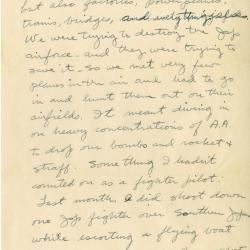 but also factories, power plants,
trains, bridges, and everything else
We were trying to destroy the Jap
airforce, and they were trying to
save it. So we met very few
planes in the air and had to go
in and hunt them out on their
airfields. It meant diving in
on heavy concentrations of A.A.
to drop our bombs and rockets &
straff. Something I hadn't
counted on as a fighter pilot.
Last month I did shoot down
one Jap fighter over Southern Jap
while escorting a flying boat